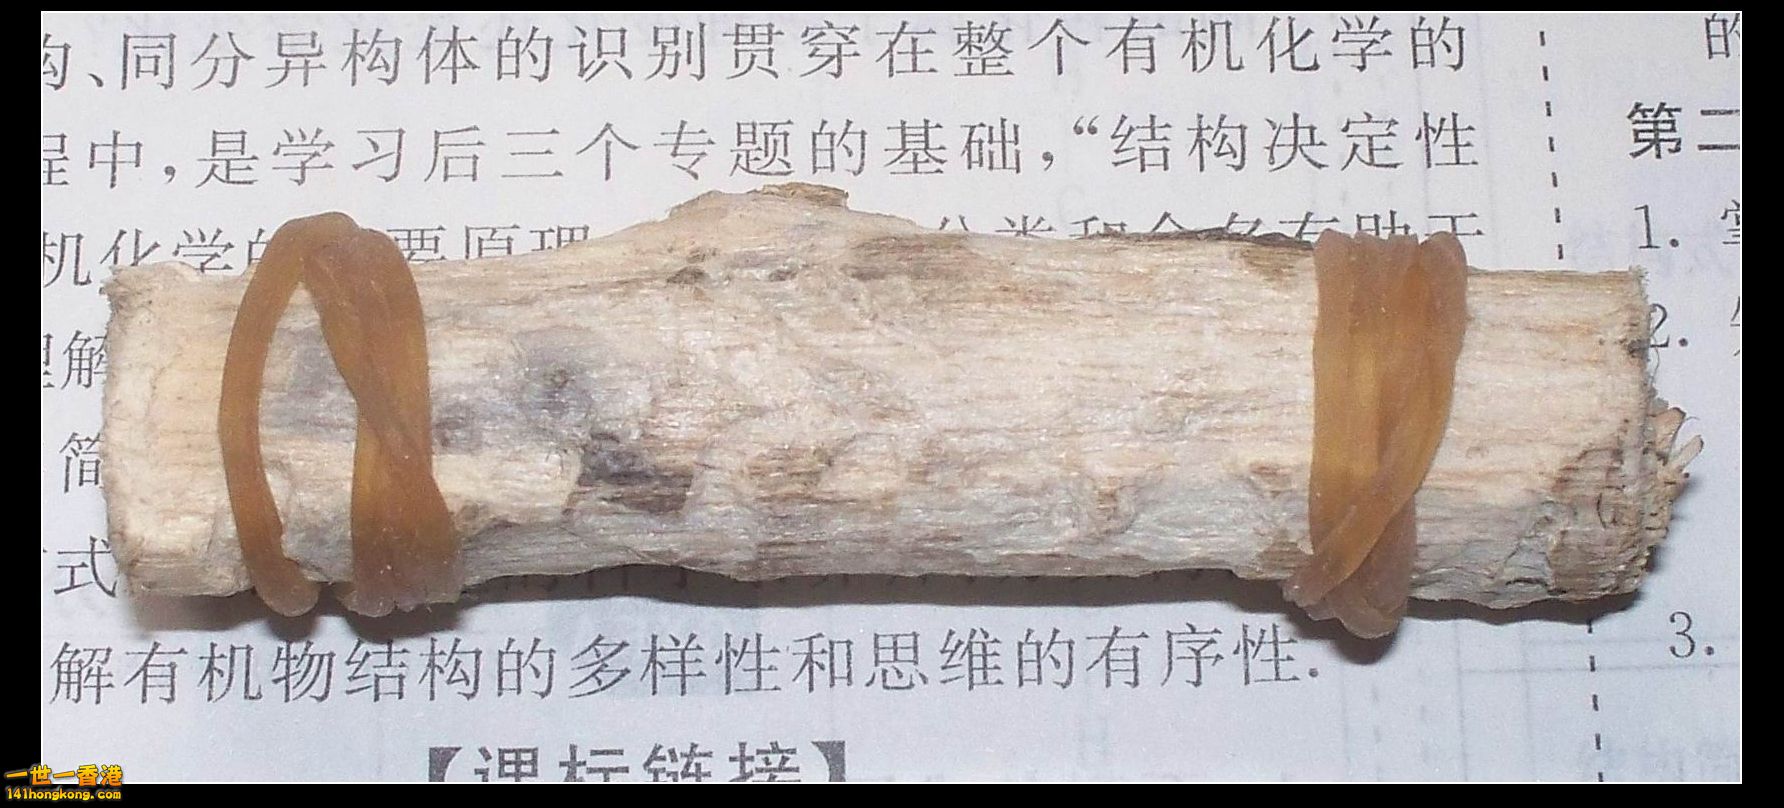 、同分异构体的识别贯穿在整个有机化学的
程中,是学习后三个专题的基础,“结构决定性
机化学的 要原理 分类和命名有助于
理解
简
式
解有机物结构的多样性和思维的有序性.
【课标链接】
的
第二
1.
2.
3.
一世一香港
141hongkong.com